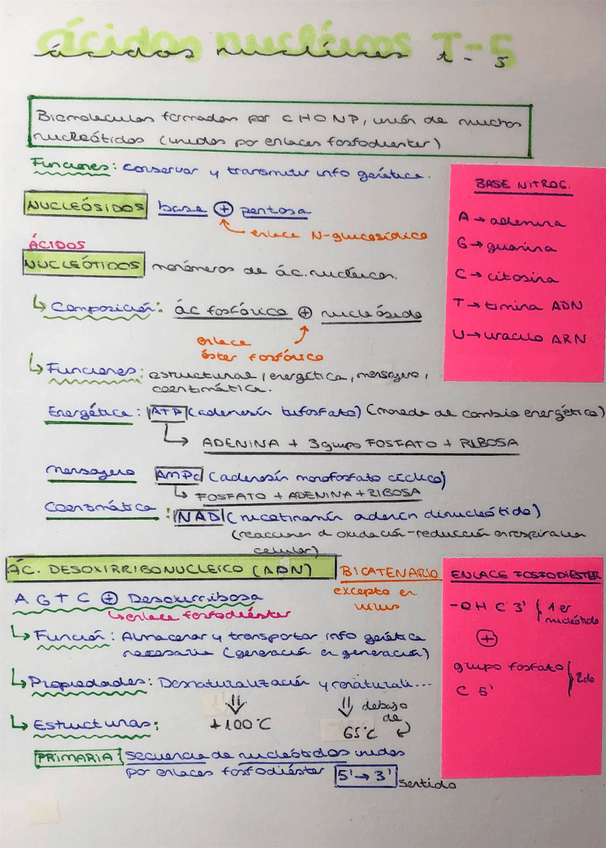 ácidos nucléicos T-5
ácidos nucléicos t-5
Biomoleculas formadas por CHONP, unión de muchos
nucleótidos (unidos por enlaces fosfodiester)
Funciones: conservar y transmitir info genética.
NUCLEÓSIDOS base + pentosa
enlace N-glucosídico
ÁCIDOS
NUCLEÓTIDOS monómeros de ác. nucleicos.
Composición: ác fosfórico + nucleósido
enlace
éster fosfórico
Funciones: estructural, energética, mensajero,
coenzimática.
Energética: ATP (adenosín trifosfato) (moneda de cambio energética)
ADENINA + 3 grupo FOSFATO + RIBOSA
mensajero AMPc (adenosín monofosfato cíclico)
FOSFATO + ADENINA + RIBOSA
Coenzimática: NAD (nicotinamín adenín dinucleótido)
(reacciones d oxidación-reducción en respiración
celular)
BASE NITROG.
A → adenina
G → guanina
C → citosina
T → timina ADN
U → uracilo ARN
ÁC. DESOXIRRIBONUCLEICO (ADN) BICATENARIO
excepto en
virus
A G T C + Desoxirribosa
enlace fosfodiéster
Función: Almacenar y transportar info genética
necesaria (generación en generación)
Propiedades: Desnaturalización y renaturali...
+100°C
debajo
de
65°C
Estructuras:
PRIMARIA secuencia de nucleótidos unidos
por enlaces fosfodiéster 5' → 3' sentido
ENLACE FOSFODIÉSTER
-OH C 3' 1er
nucleótido
+
grupo fosfato
C 5' 2do